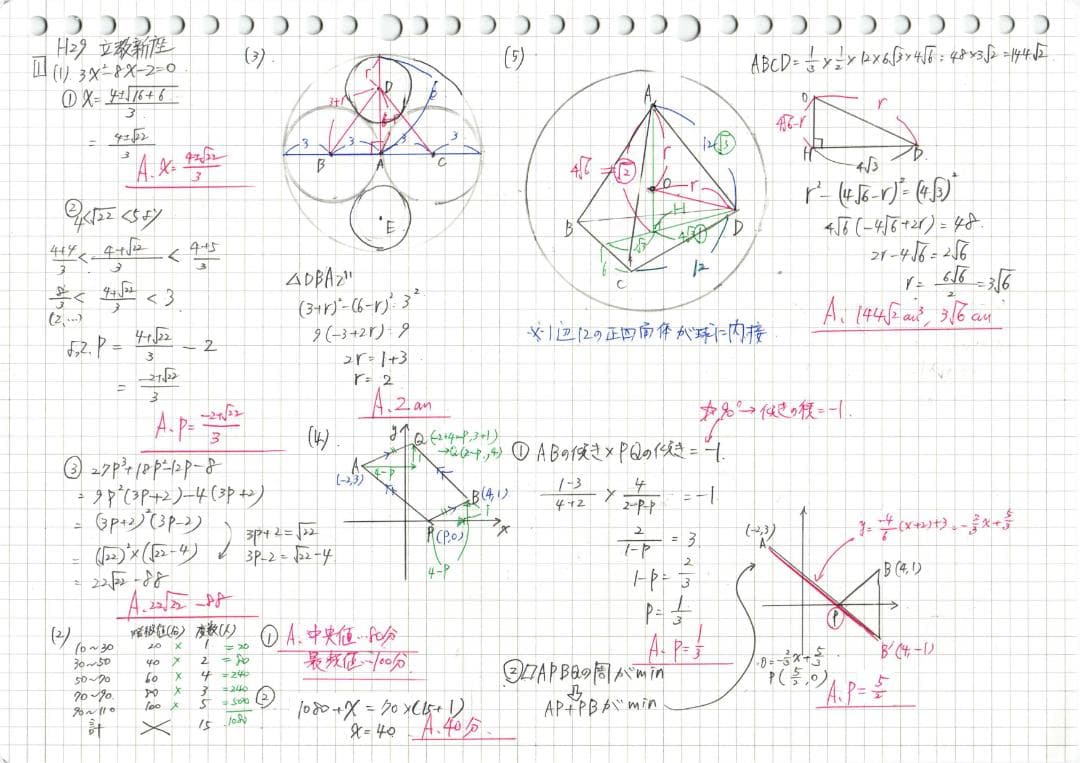 H29 立教新座
1
(1) 3x²-8x-2=0
① x=4±√16+6/3
= 4±√22/3
A. x=4±√22/3
② 4<√22<5より
4+4/3 < 4+√22/3 < 4+5/3
8/3 < 4+√22/3 < 3
(2,...)
P= 4+√22/3 - 2
= -2+√22/3
A. P= -2+√22/3
③ 27P³+18P²-12P-8
= 9P²(3P+2)-4(3P+2)
= (3P+2)²(3P-2)
= (√22)²×(√22-4)
= 22√22-88
3P+2=√22
3P-2=√22-4
A. 22√22-88
(2)
階級値(分) 度数(人)
10~30 20 × 1 =20
30~50 40 × 2 =80
50~70 60 × 4 =240
70~90 80 × 3 =240
90~110 100 × 5 =500
計 15 1080
① A. 中央値…80分
最頻値…100分
② 1080+x=70×(15+1)
x=40 A. 40分
(3)
r
D
3+r
6
3 3 3 3
B A C
E
△DBAで
(3+r)²-(6-r)²=3²
9(-3+2r)=9
2r=1+3
r=2
A. 2cm
(4)
y
Q(-2+4-P,3+1)
→Q(2-P,4)
A
(-2,3)
4-P
B(4,1)
1
x
P(P,0)
4-P
① ABの傾き×PQの傾き=-1
90°→傾きの積=-1
1-3/4+2 × 4/2-P-P = -1
2/1-P = 3
1-P= 2/3
P= 1/3
A. P=1/3
② □APBQの周がmin
AP+PBがmin
(-2,3)
A
y= -4/6(x+2)+3=-2/3x+5/3
B(4,1)
P
B'(4,-1)
0=-2/3x+5/3
P(5/2,0)
A. P=5/2
(5)
A
12
√3
4√6
√2
r
O
r
H
B
D
4√3
6
C
12
※1辺12の正四面体が球に内接
ABCD=1/3×1/2×12×6√3×4√6=48×3√2=144√2
O
r
4√6-r
H
4√3
D
r²-(4√6-r)²=(4√3)²
4√6(-4√6+2r)=48
2r-4√6=2√6
r= 6√6/2 =3√6
A. 144√2cm³, 3√6cm